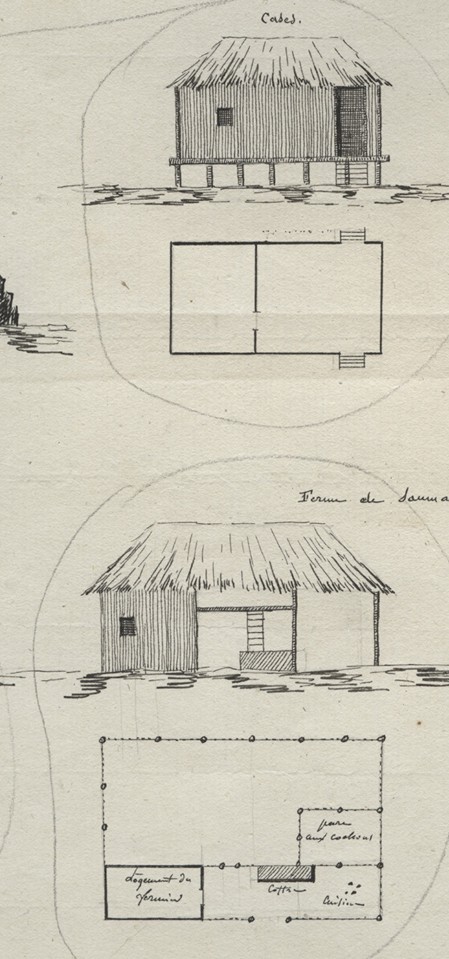 Cases.
Ferme de
parc
aux cochons
Logement du
fermier
Coffre
Cuisine